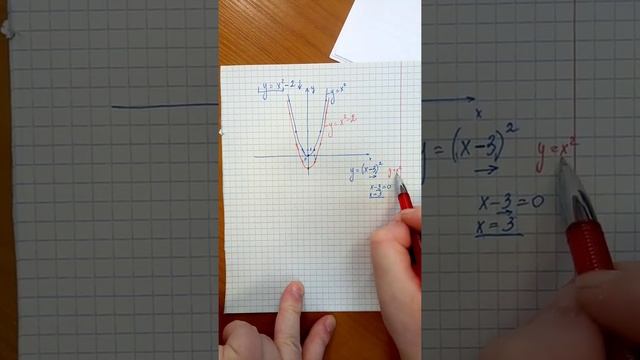 y = x² - 2 ↓
y
y = x²
y = x² - 2
x
y = (x-3)²
y = x²
x - 3 = 0
x = 3
x
y = (x-3)²
y = x²
x - 3 = 0
x = 3